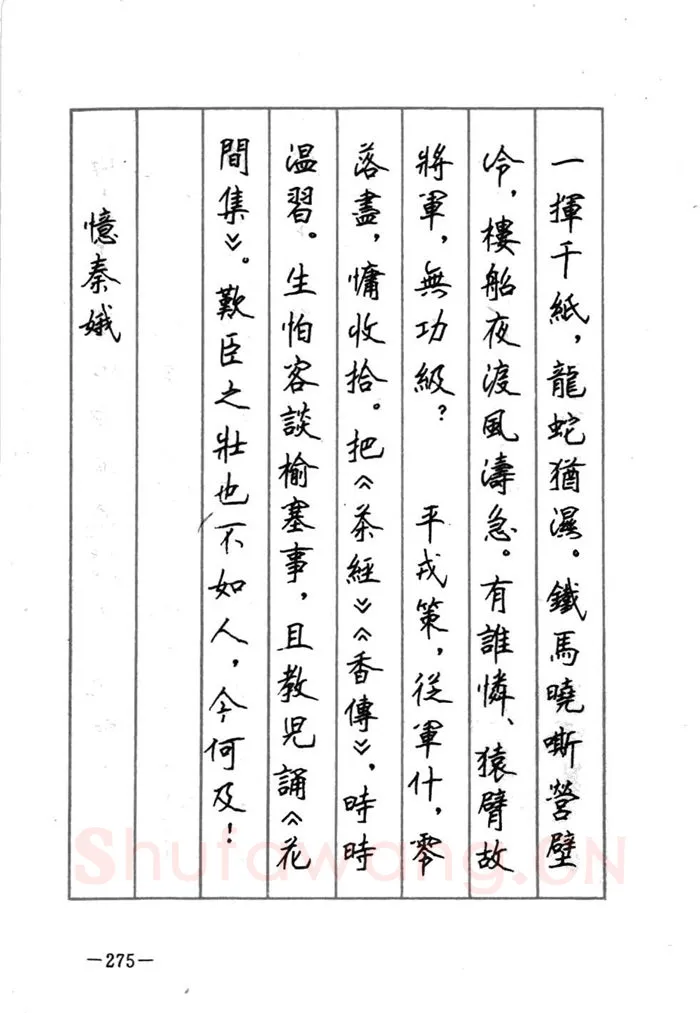 一揮千紙，龍蛇猶濕。鐵馬曉嘶營壁
冷，樓船夜渡風濤急。有誰憐、猿臂故
將軍，無功級？　平戎策，從軍什，零
落盡，慵收拾。把《茶經》《香傳》，時時
溫習。生怕客談榆塞事，且教児誦《花
間集》。歎臣之壯也不如人，今何及！
憶秦娥
Shufawang.CN
—275—